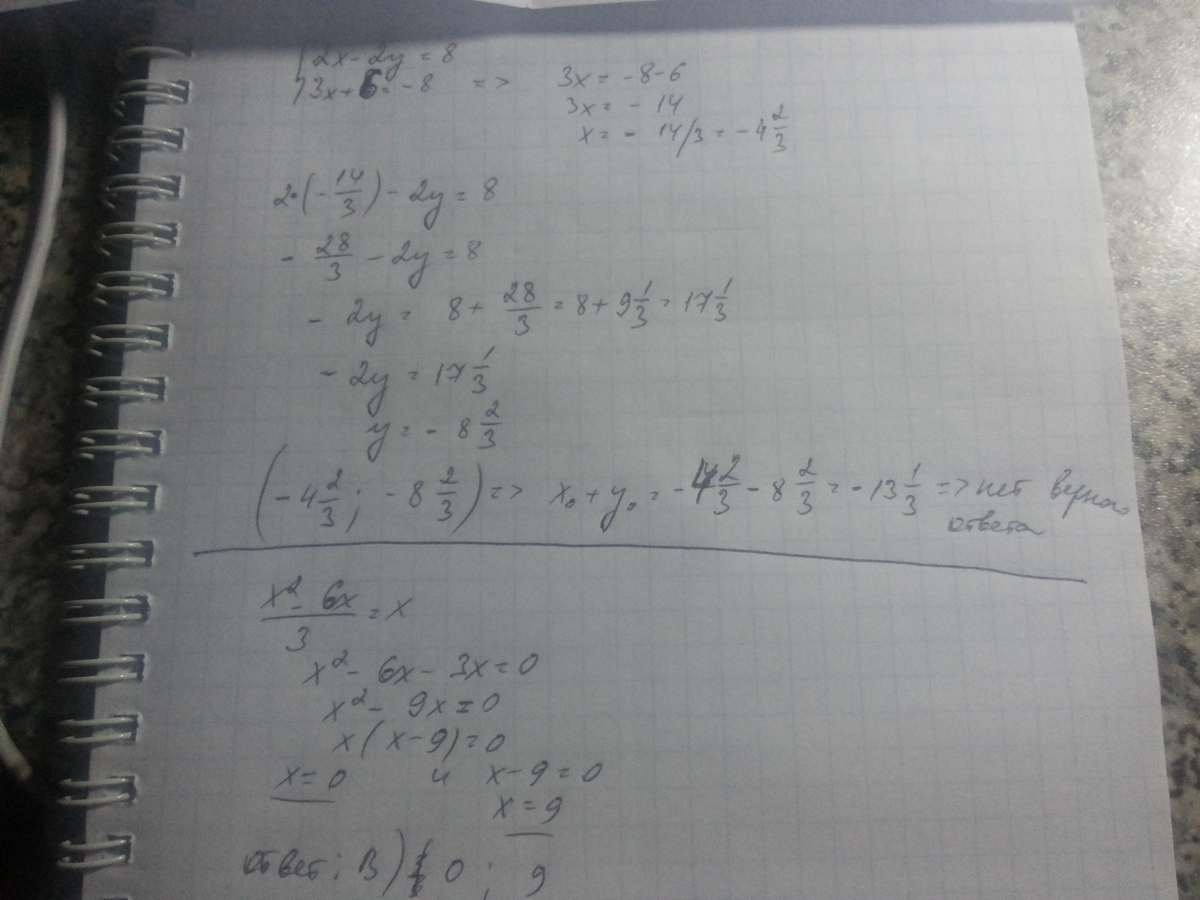 {2x - 2y = 8
{3x + 6 = -8 => 3x = -8-6
3x = - 14
x = - 14/3 = -4 2/3
2·(-14/3) - 2y = 8
- 28/3 - 2y = 8
- 2y = 8 + 28/3 = 8 + 9 1/3 = 17 1/3
- 2y = 17 1/3
y = - 8 2/3
(-4 2/3; -8 2/3) => x₀ + y₀ = -4 2/3 - 8 2/3 = -13 1/3 => нет верного
ответа
x² - 6x / 3 = x
x² - 6x - 3x = 0
x² - 9x = 0
x(x-9) = 0
x = 0 и x-9 = 0
x = 9
ответ: В) 0; 9